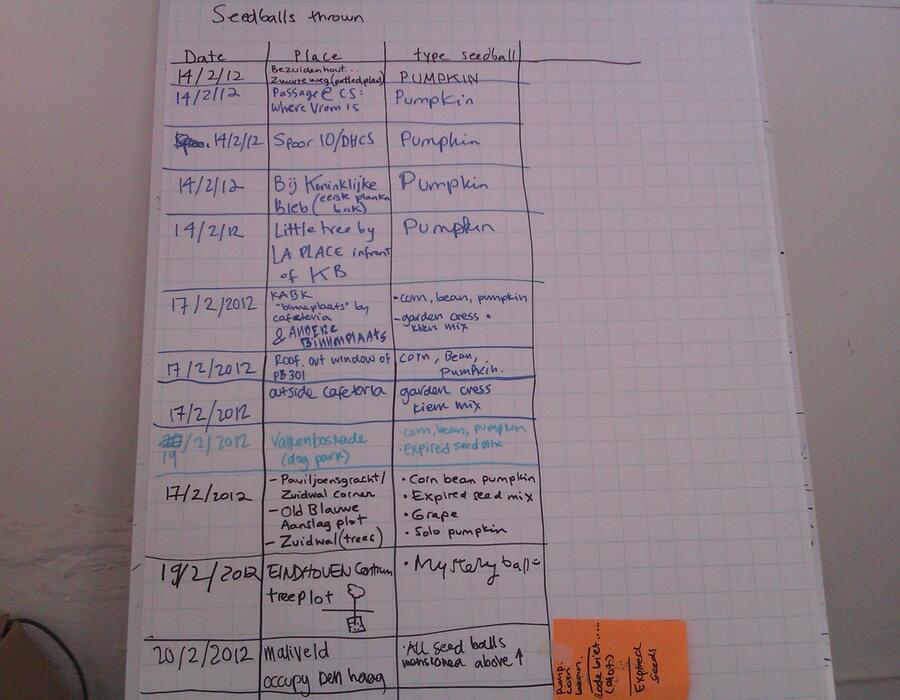 Seedballs thrown
Date Place type seedball
14/2/12 Bezuidenhout... PUMPKIN
Zwarteweg
14/2/12 Passage @ CS: Pumpkin
where Vrom is
14/2/12 Spoor 10/DHCS Pumpkin
14/2/12 Bij Koninklijke Pumpkin
Bieb (eerste planten
bak)
14/2/12 Little tree by Pumpkin
LA PLACE infront
of KB
17/2/2012 KABK • corn, bean, pumpkin
"binneplaats" by - garden cress +
cafeteria kiem mix
& ANDERE
BINNENPLAATS
17/2/2012 Roof. out window of corn, Bean,
PB301 Pumpkin.
17/2/2012 outside cafeteria garden cress
kiem mix
19/2/2012 Valkenboskade corn, bean, pumpkin
(dog park) • Expired seed mix
17/2/2012 - Paviljoensgracht/ • Corn bean pumpkin
Zuidwal corner • Expired seed mix
- Old Blauwe • Grape
Aanslag plot • Solo pumpkin
- Zuidwal (trees)
19/2/2012 EINDHOVEN Centrum • Mystery ball
treeplot
20/2/2012 maliveld • All seed balls
occupy Den haag mensioned above ↑
Pump.
corn
bean.
Expired
seeds